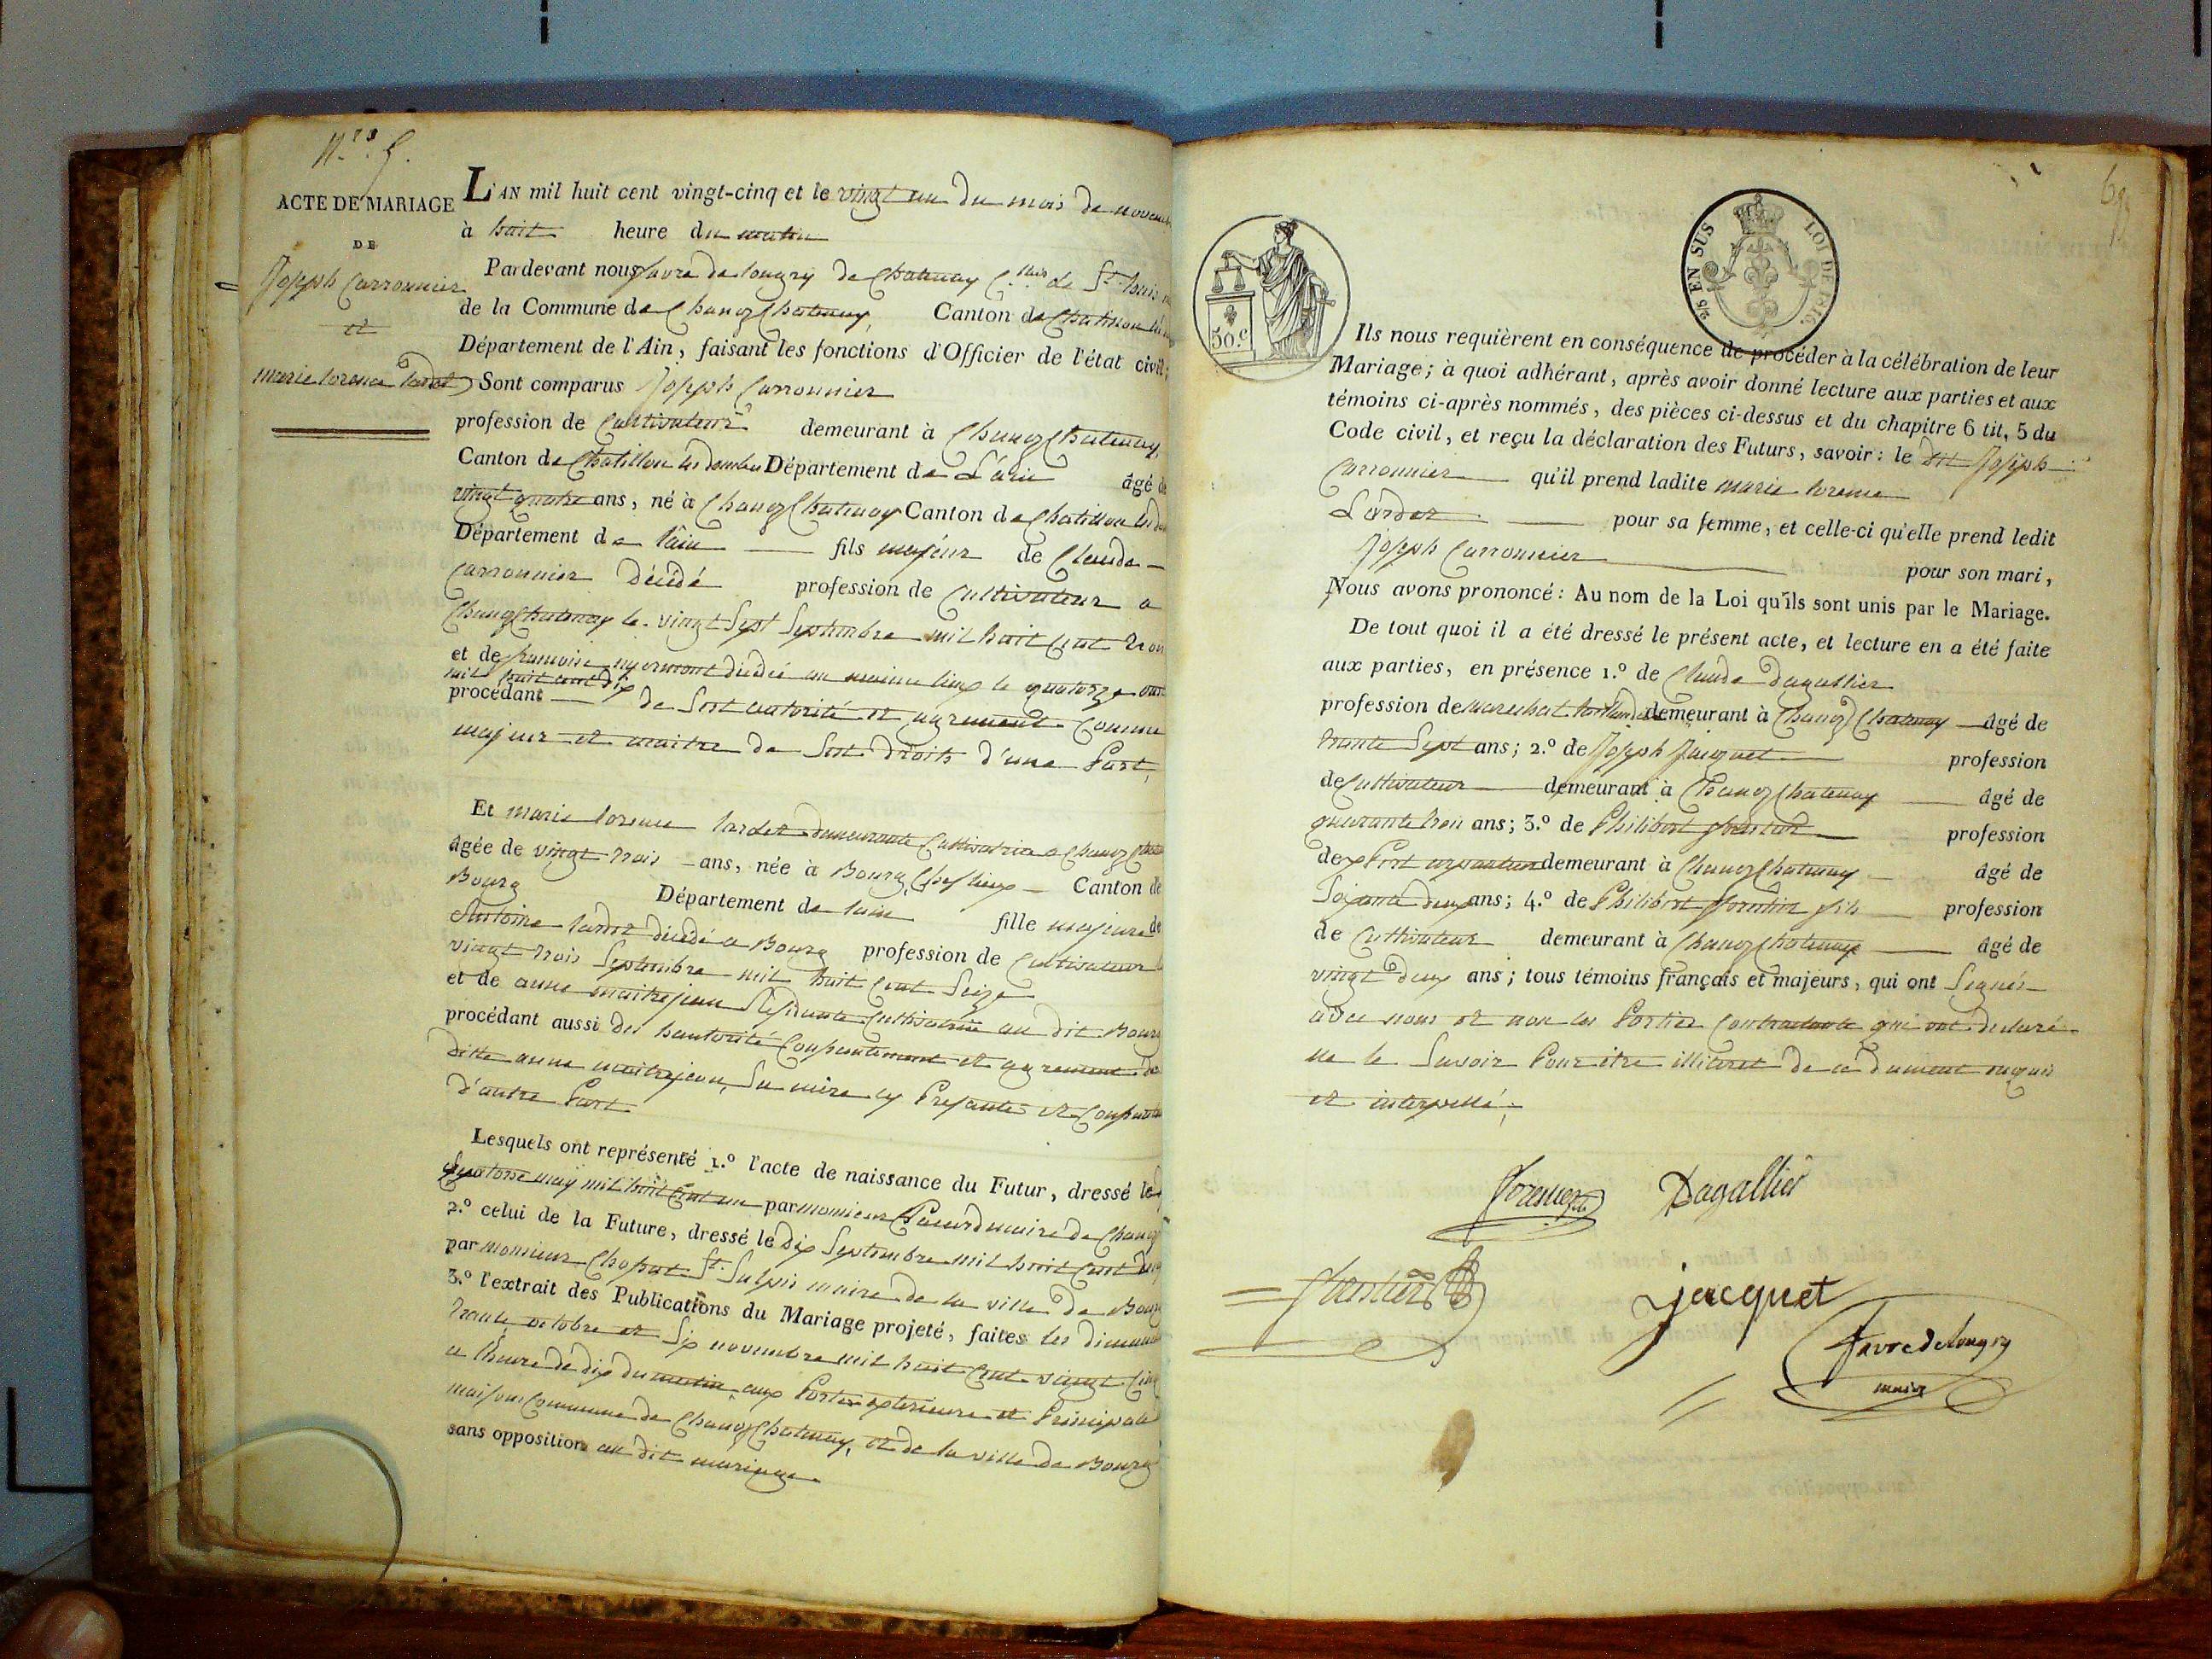 N.ro 5.
ACTE DE MARIAGE
DE
Joseph Carronnier
et
marie lorence lardet
L'AN mil huit cent vingt-cinq et le vingt un du mois de
à huit heure du matin
Pardevant nous favre de longry de Chatenay de St
de la Commune de Chanoz Chatenay, Canton de Chatillon
Département de l'Ain, faisant les fonctions d'Officier de l'état civil;
Sont comparus Joseph Carronnier
profession de Cultivateur demeurant à Chanoz Chatenay
Canton de Chatillon les dombes Département de L'ain âgé de
vingt quatre ans, né à Chanoz Chatenay Canton de Chatillon
Département de lain fils majeur de Claude
Carronnier décédé profession de Cultivateur a
Chanoz Chatenay le vingt Sept Septembre mil huit Cent
et de francoise décédée au meme lieux le quatorze
mil huit cent dix
procédant de Son autorité et agrement Comme
majeur et maitre de Ses droits d'une Part,
Et marie lorence lardet demeurante Cultivatrice a Chanoz
âgée de vingt trois ans, née à Bourg, Chef lieux Canton de
Bourg Département de lain fille majeure de
Antoine lardet décédé a Bourg profession de Cultivateur
vingt trois Septembre mil huit Cent Seize
et de anne maitrejean Cultivatrice au dit Bourg
procédant aussi de lautorité Consentement et agrement de
ditte anne maitrejean, Sa mère cy Presante et
d'autre Part
Lesquels ont représenté 1.º l'acte de naissance du Futur, dressé le
quatorse may mil huit Cent un par monieur maire de Chanoz
2.º celui de la Future, dressé le dix Septembre mil huit Cent
par monsieur Chossat St. Sulpis maire de la ville de Bourg
3.º l'extrait des Publications du Mariage projeté, faites les
trante octobre et Six novembre mil huit Cent vingt Cinq
a lheure de dix du matin, aux Portes exterieure et Principale
maison Commune de Chanoz Chatenay, et de la ville de Bourg
sans opposition au dit mariage
50.c
2/5 EN SUS
LOI DE 1816.
Ils nous requièrent en conséquence de procéder à la célébration de leur
Mariage; à quoi adhérant, après avoir donné lecture aux parties et aux
témoins ci-après nommés, des pièces ci-dessus et du chapitre 6 tit. 5 du
Code civil, et reçu la déclaration des Futurs, savoir: le dit Joseph
Carronnier qu'il prend ladite marie lorence
Lardet pour sa femme, et celle-ci qu'elle prend ledit
Joseph Carronnier pour son mari,
Nous avons prononcé: Au nom de la Loi qu'ils sont unis par le Mariage.
De tout quoi il a été dressé le présent acte, et lecture en a été faite
aux parties, en présence 1.º de Claude Dagallier
profession de marechat demeurant à Chanoz Chatenay âgé de
trante Sept ans; 2.º de Joseph Jacquet profession
de Cultivateur demeurant à Chanoz Chatenay âgé de
quarante trois ans; 3.º de Philibert profession
de demeurant à Chanoz Chatenay âgé de
Soixante deux ans; 4.º de Philibert fils profession
de Cultivateur demeurant à Chanoz Chatenay âgé de
vingt deux ans; tous témoins français et majeurs, qui ont Signés
avec nous et non les Parties Contractante qui ont declaré
ne le Savoir Pour être illiteret de ce dument requis
et interpellé;
Dagallier
jacquet
favre de longry
maire